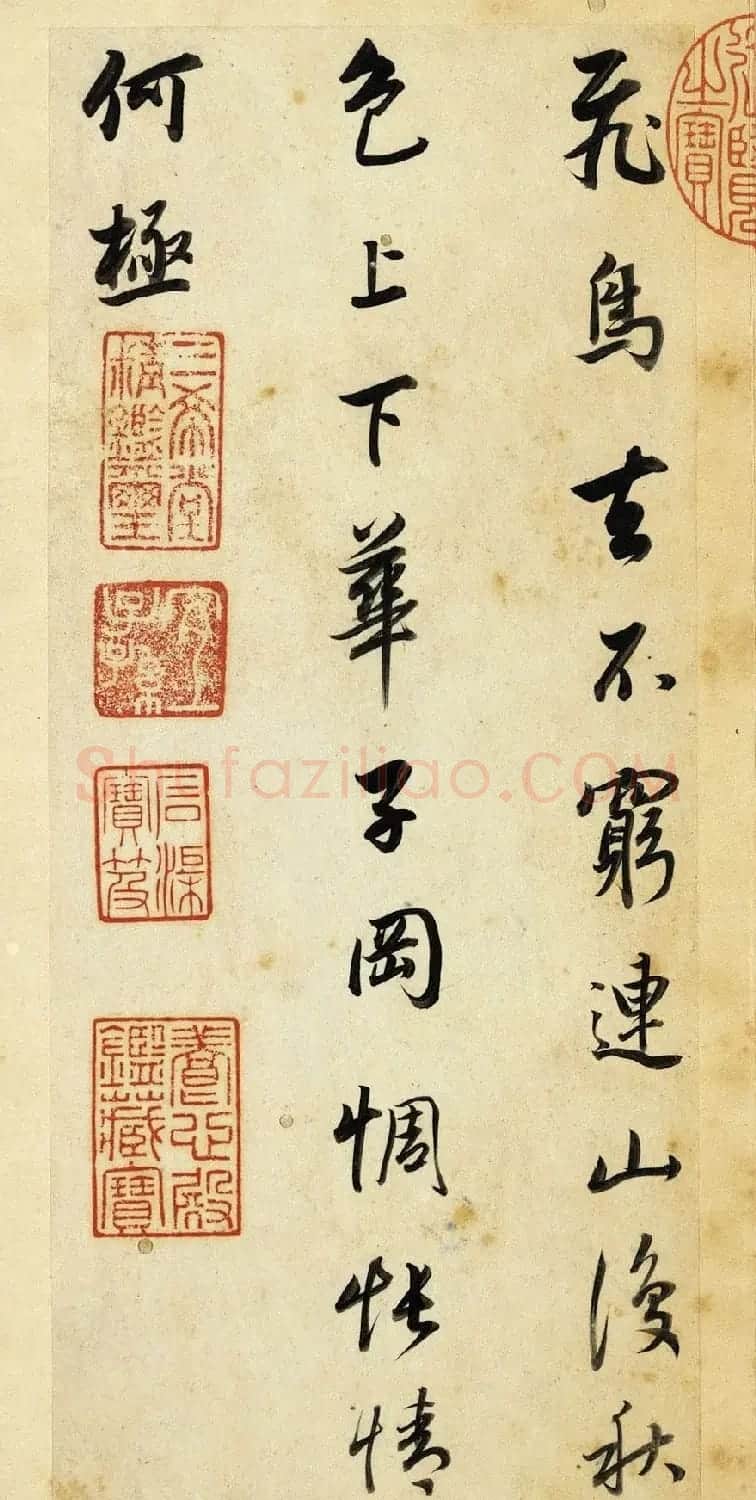 飛鳥去不窮連山復秋
色上下華子岡惆悵情
何極
之寶
三希堂
精鑑璽
石渠
寶笈
養心殿
鑑藏寶
Shufaziliao.COM